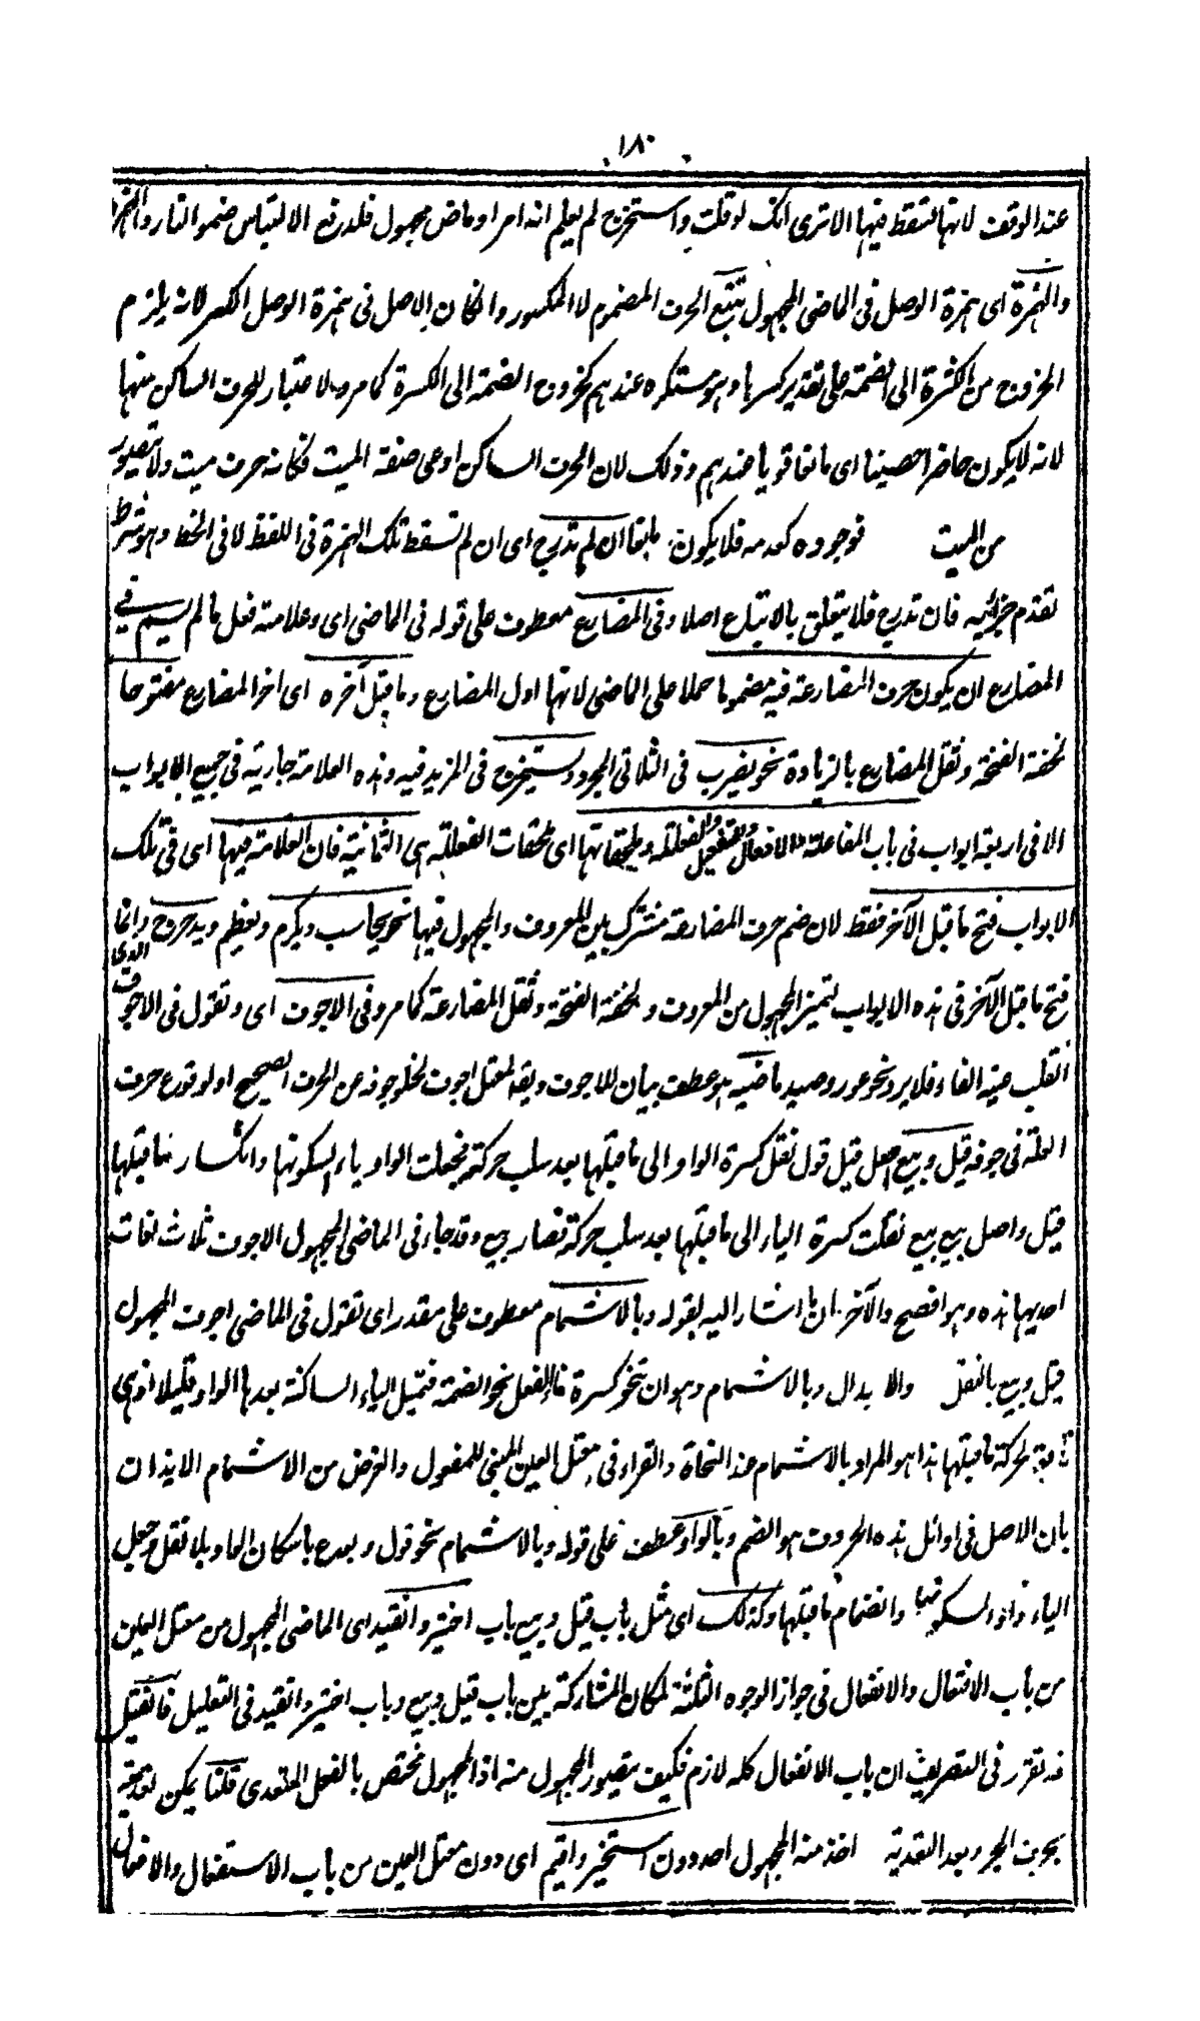 ١٨٠
عند الوقف لانها تسقط فيها الا ترى انك لو قلت واستخرج لم يعلم انه امر او ماض مجهول فلدفع الالتباس ضموا التاء والهمزة
والهمزة اى همزة الوصل فى الماضى المجهول تتبع الحرف المضموم لا المكسور وان كان الاصل فى همزة الوصل الكسر لانه يلزم
الخروج من الكسرة الى الضمة على تقدير كسرها وهو مستكره عندهم كخروج الضمة الى الكسرة كما مر ولا اعتبار للحرف الساكن منها
لانه لا يكون حاضرا حصينا اى مانعا قويا عندهم وذلك لان الحرف الساكن اوعى صفة الميت فكانه حرف ميت ولا يتصور
من الميت فوجوده كعدمه فلا يكون مانعا ان لم تدرج اى ان لم تسقط تلك الهمزة فى اللفظ لا فى الخط وهو شرط
تقدم جزائيه فان تدرج فلا يتعلق بالاتباع اصلا وفى المضارع معطوف على قوله فى الماضى اى وعلامته فعل ما لم يسم فى
المضارع ان يكون حرف المضارعة فيه مضموما حملا على الماضى لانها اول المضارع وما قبل آخره اى اخر المضارع مفتوحا
لخفة الفتحة وثقل المضارع بالزيادة نحو يضرب فى الثلاثى المجرد ويستخرج فى المزيد فيه وهذه العلامة جارية فى جميع الابواب
الا فى اربعة ابواب فى باب المفاعلة والافعال والتفعيل والفعللة وملحقاتها اى ملحقات الفعللة هى الثمانية فان العلامة فيها اى فى تلك
الابواب فتح ما قبل الآخر فقط لان ضم حرف المضارعة مشترك بين المعروف والمجهول فيها نحو يحاسب ويكرم ويعظم ويدحرج وانما
فتح ما قبل الآخر فى هذه الابواب لتميز المجهول من المعروف ولخفة الفتحة وثقل المضارعة كما مر وفى الاجوف اى وتقول فى الاجوف الذى
انقلب عينه الفا فلا يرد نحو عور وصيد ماضيه هو عطف بيان للاجوف ويقه لمعتل اجوف لخلو جوفه عن الحرف الصحيح او لوقوع حرف
العلة فى جوفه قيل وبيع اصل قيل قول نقل كسرة الواو الى ما قبلها بعد سلب حركته فجعلت الواو ياء لسكونها وانكسار ما قبلها
قيل واصل بيع بيع نقلت كسرة الياء الى ما قبلها بعد سلب حركته فصار بيع وقد جاء فى الماضى المجهول الاجوف ثلاث لغات
احديها هذه وهو افصح والآخران ما اشار اليه بقوله وبالاشمام معطوف على مقدر اى تقول فى الماضى اجوف المجهول
قيل وبيع بالنقل والابدال وبالاشمام وهو ان تنحو كسرة فاء الفعل نحو الضمة فتميل الياء الساكنة بعدها الواو قليلا اذ هى
تابعة لحركة ما قبلها هذا هو المراد بالاشمام عند النحاة والقراء فى معتل العين المبنى للمفعول والغرض من الاشمام الايذان
بان الاصل فى اوائل هذه الحروف هو الضم وبالواو عطف على قوله وبالاشمام نحو قول وبوع باسكان الواو بلا نقل وجعل
الياء واوا لسكونها وانضمام ما قبلها وكذلك اى مثل باب قيل وبيع باب اختير وانقيد اى الماضى المجهول من معتل العين
من باب الافتعال والانفعال فى جواز الوجوه الثلثة لمكان المشاركة بين باب قيل وبيع وباب اختير وانقيد فى التعليل فان قيل
قد تقرر فى التصريف ان باب الانفعال كله لازم فكيف يتصور المجهول منه اذ المجهول مختص بالفعل المتعدى قلنا يمكن تعديته
بحرف الجر وبعد التعدية اخذ منه المجهول احد دون استخير واقيم اى دون معتل العين من باب الاستفعال والافعال